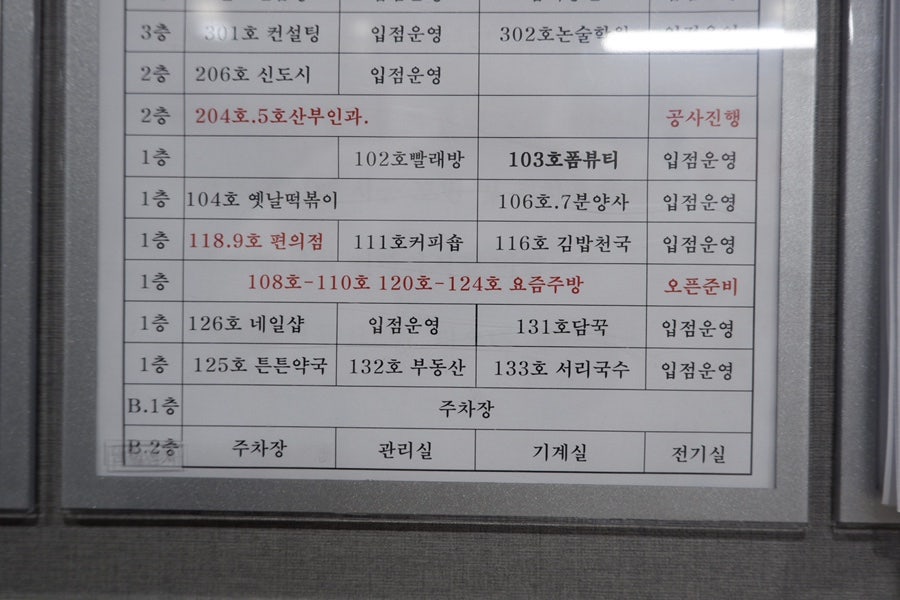 3층 301호 컨설팅 입점운영 302호논술학원 입점운영
2층 206호 신도시 입점운영
2층 204호.5호산부인과. 공사진행
1층 102호빨래방 103호폼뷰티 입점운영
1층 104호 옛날떡볶이 106호.7분양사 입점운영
1층 118.9호 편의점 111호커피숍 116호 김밥천국 입점운영
1층 108호-110호 120호-124호 요즘주방 오픈준비
1층 126호 네일샵 입점운영 131호담꾹 입점운영
1층 125호 튼튼약국 132호 부동산 133호 서리국수 입점운영
B.1층 주차장
B.2층 주차장 관리실 기계실 전기실